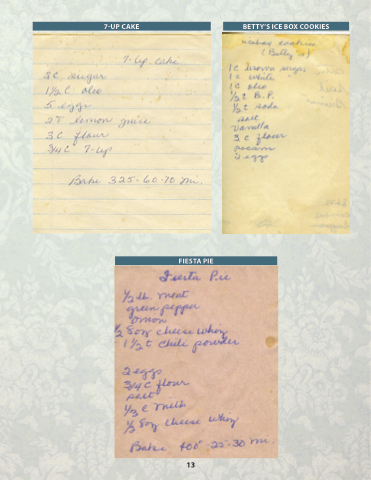 7-UP CAKE
7-Up cake
3 C sugar
1½ C oleo
5 eggs
2T lemon juice
3 C flour
3/4 C 7-Up
Bake 325-60-70 mi.
BETTY'S ICE BOX COOKIES
icebox cookies
(Betty's)
1 C brown sugar
1 C white
1 C oleo
½ t B.P.
½ t soda
salt
Vanilla
3 C flour
pecans
2 eggs
FIESTA PIE
Fiesta Pie
½ lb. meat
green pepper
onion
½ 8oz cheese whez
1 ½ t chili powder
2 eggs
3/4 C flour
salt
1/3 C milk
½ 8oz cheese whez
Bake 400° 25-30 mi.
13